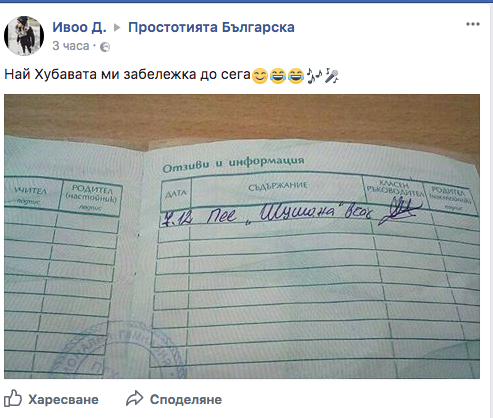 Ивоо Д. Простотията Българска
3 часа
Най Хубавата ми забележка до сега😊😂😂🎶🎤
Отзиви и информация
УЧИТЕЛ
подпис
РОДИТЕЛ
(настойник)
подпис
ДАТА
СЪДЪРЖАНИЕ
КЛАСЕН
РЪКОВОДИТЕЛ
подпис
РОДИТЕЛ
(настойник)
подпис
7.12 Пее „Шушана“ в час
Харесване Споделяне